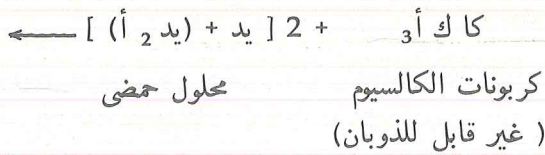 كا ك أ3 + 2 [ يد + (يد 2 أ) ] ⟵
كربونات الكالسيوم محلول حمضى
( غير قابل للذوبان)